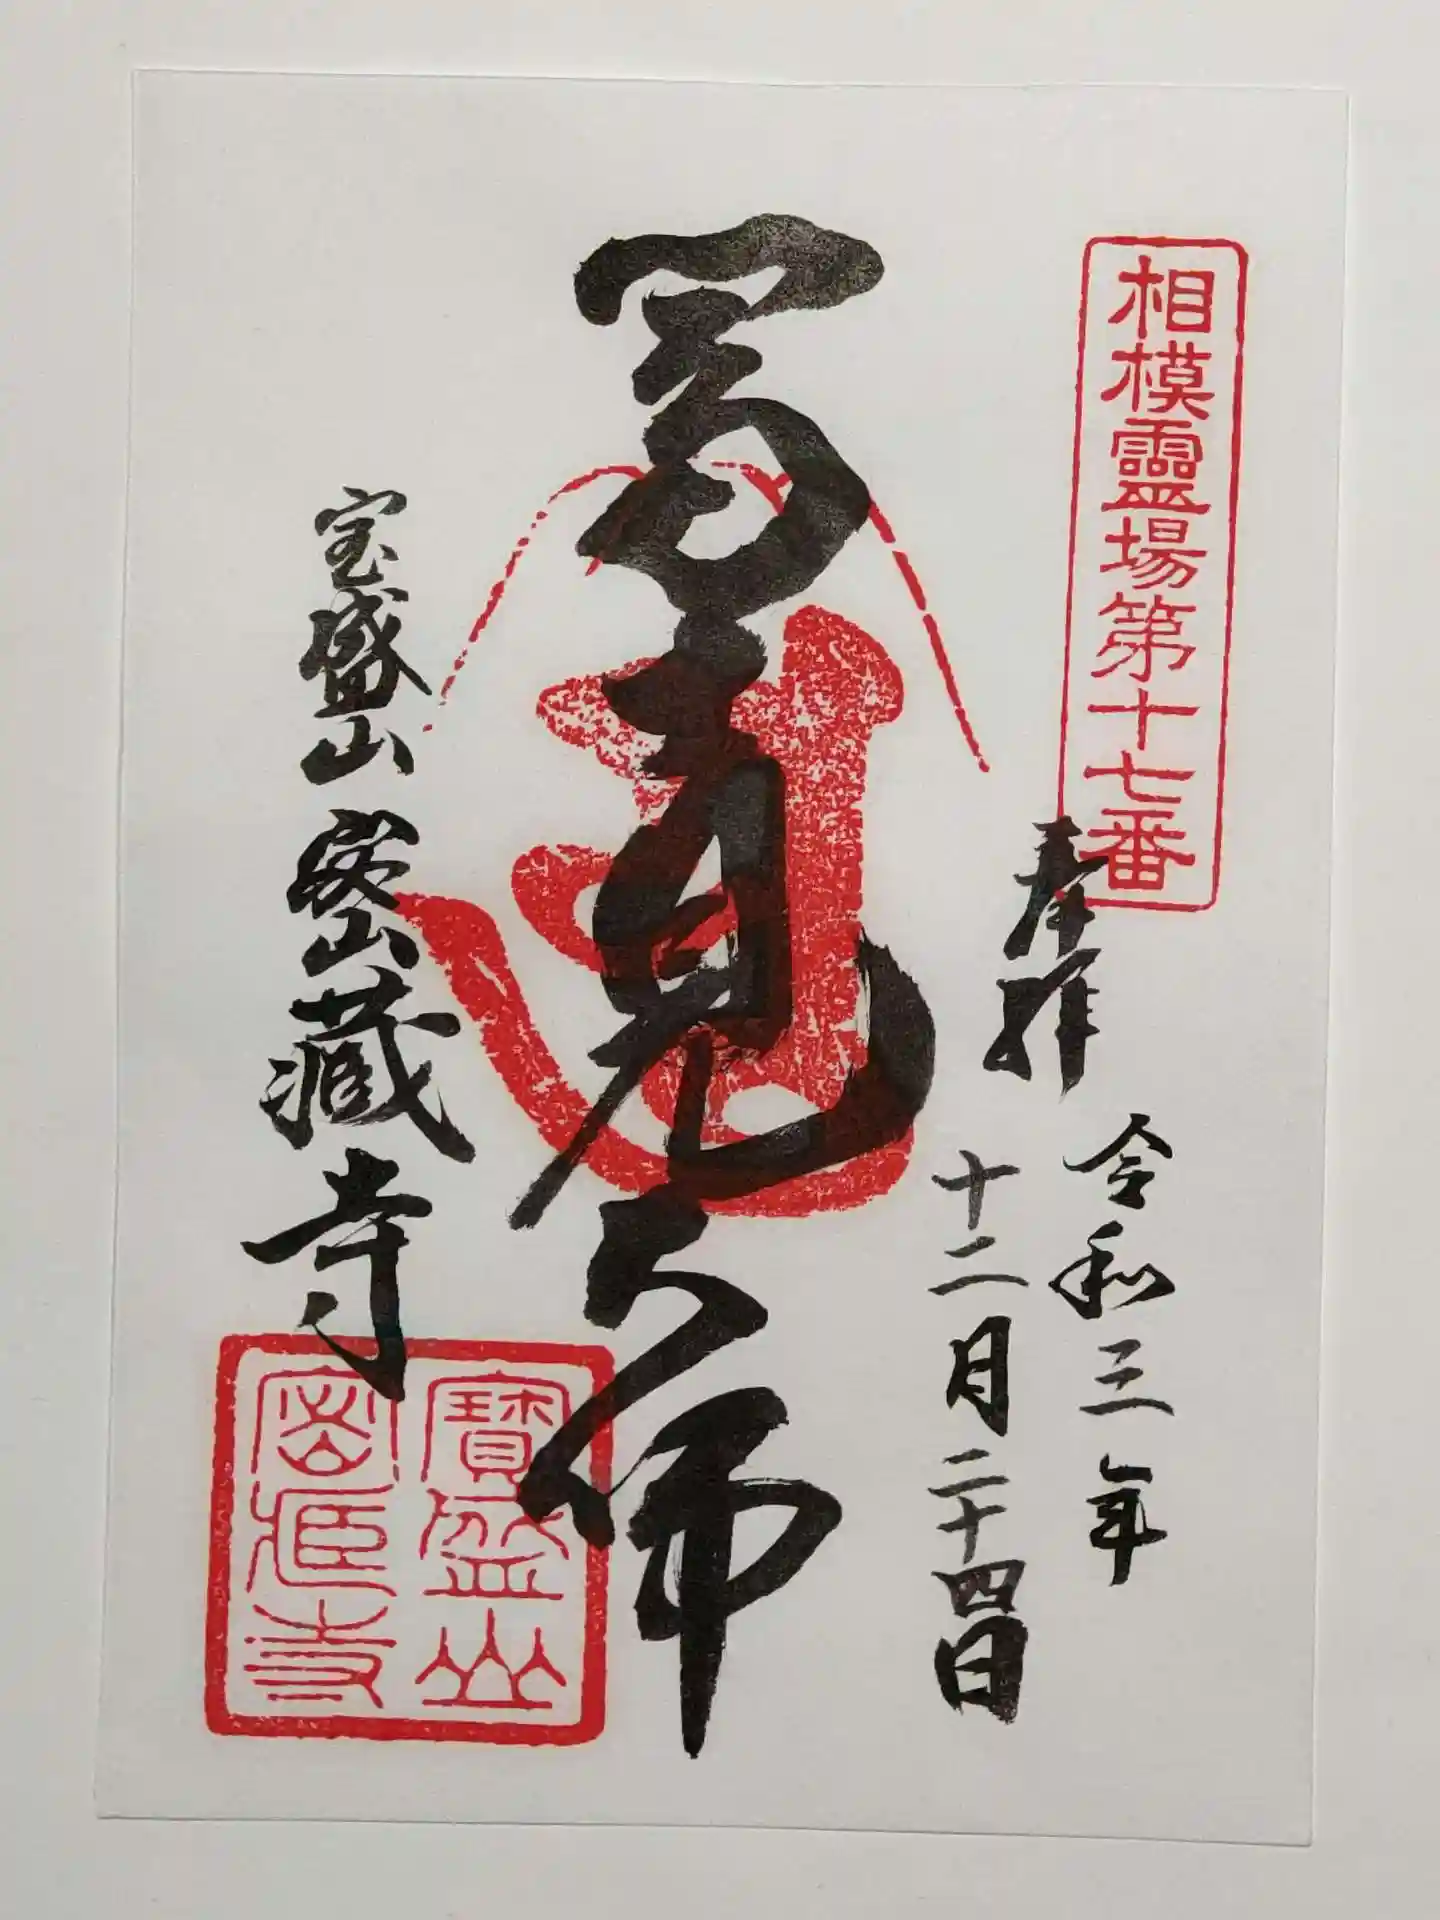 相模霊場第十七番
奉拝
令和三年
十二月二十四日
富士見大師
宝盛山密蔵寺
寶盛山
密蔵寺